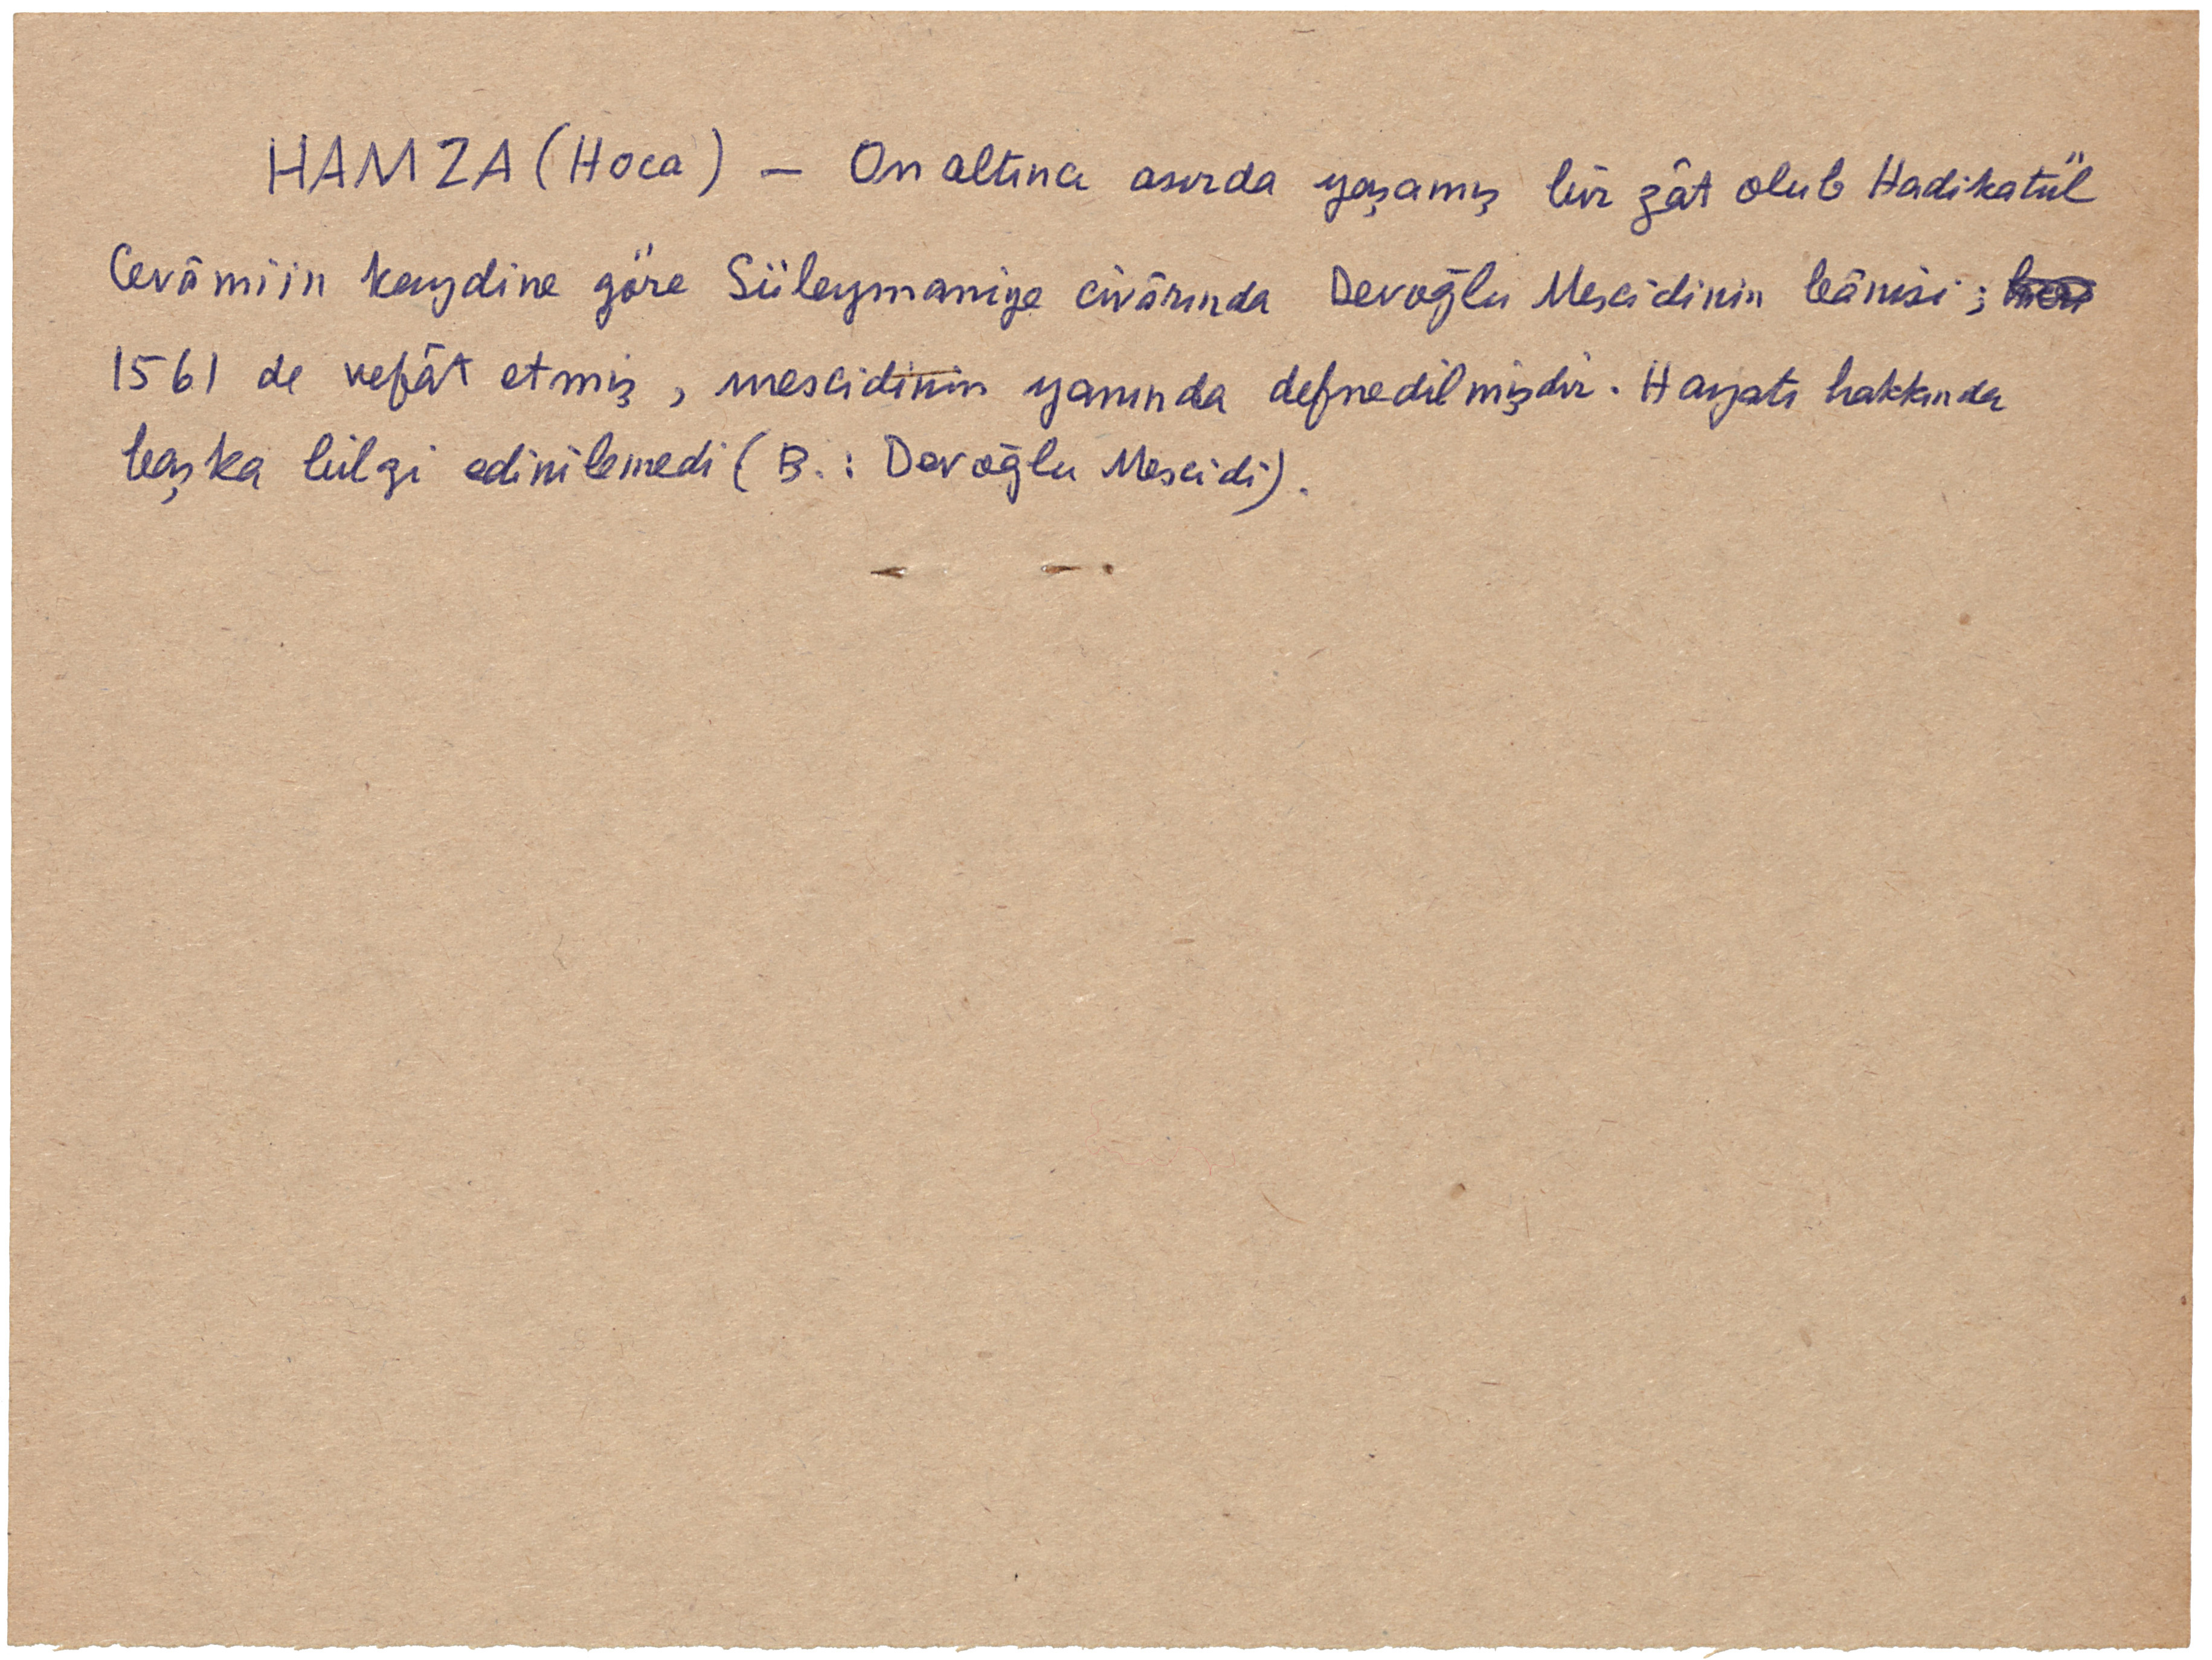 HAMZA (Hoca) — On altıncı asırda yaşamış bir zât olub Hadikatül
Cevâmiin kaydine göre Süleymaniye civârında Devoğlu Mescidinin bânisi;
1561 de vefât etmiş, mescidinin yanında defnedilmişdir. Hayatı hakkında
başka bilgi edinilemedi (B.: Devoğlu Mescidi).